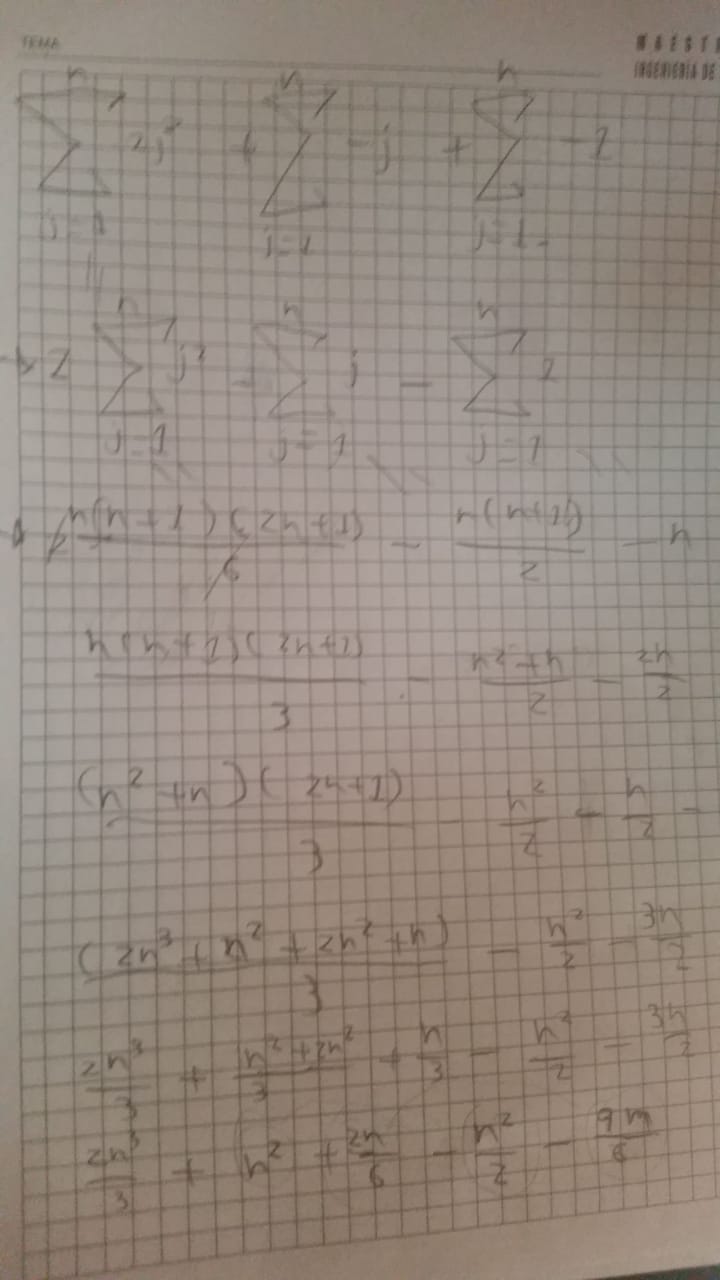 TEMA
MAEST
INGENIERÍA DE
n n n
∑ 2j² + ∑ -j + ∑ -1
j=1 j=1 j=1
n n n
2 ∑ j² - ∑ j - ∑ 1
j=1 j=1 j=1
2 n(n+1)(2n+1)/6 - n(n+1)/2 - n
n(n+1)(2n+1)/3 - n²+n/2 - 2n/2
(n²+n)(2n+1)/3 - n²/2 - n/2 -
(2n³ + n² + 2n² + n)/3 - n²/2 - 3n/2
2n³/3 + n²+2n²/3 + n/3 - n²/2 - 3n/2
2n³/3 + n² + 2n/6 - n²/2 - 9n/6